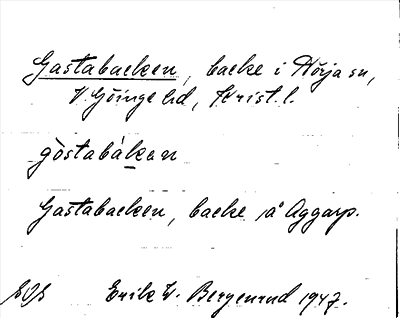 Gastabacken, backe i Hörja sn,
V. Göinge hd, Krist. l.
gòstabákan
Gastabacken, backe på Aggarp.
Erik W. Bergenrud 1947.